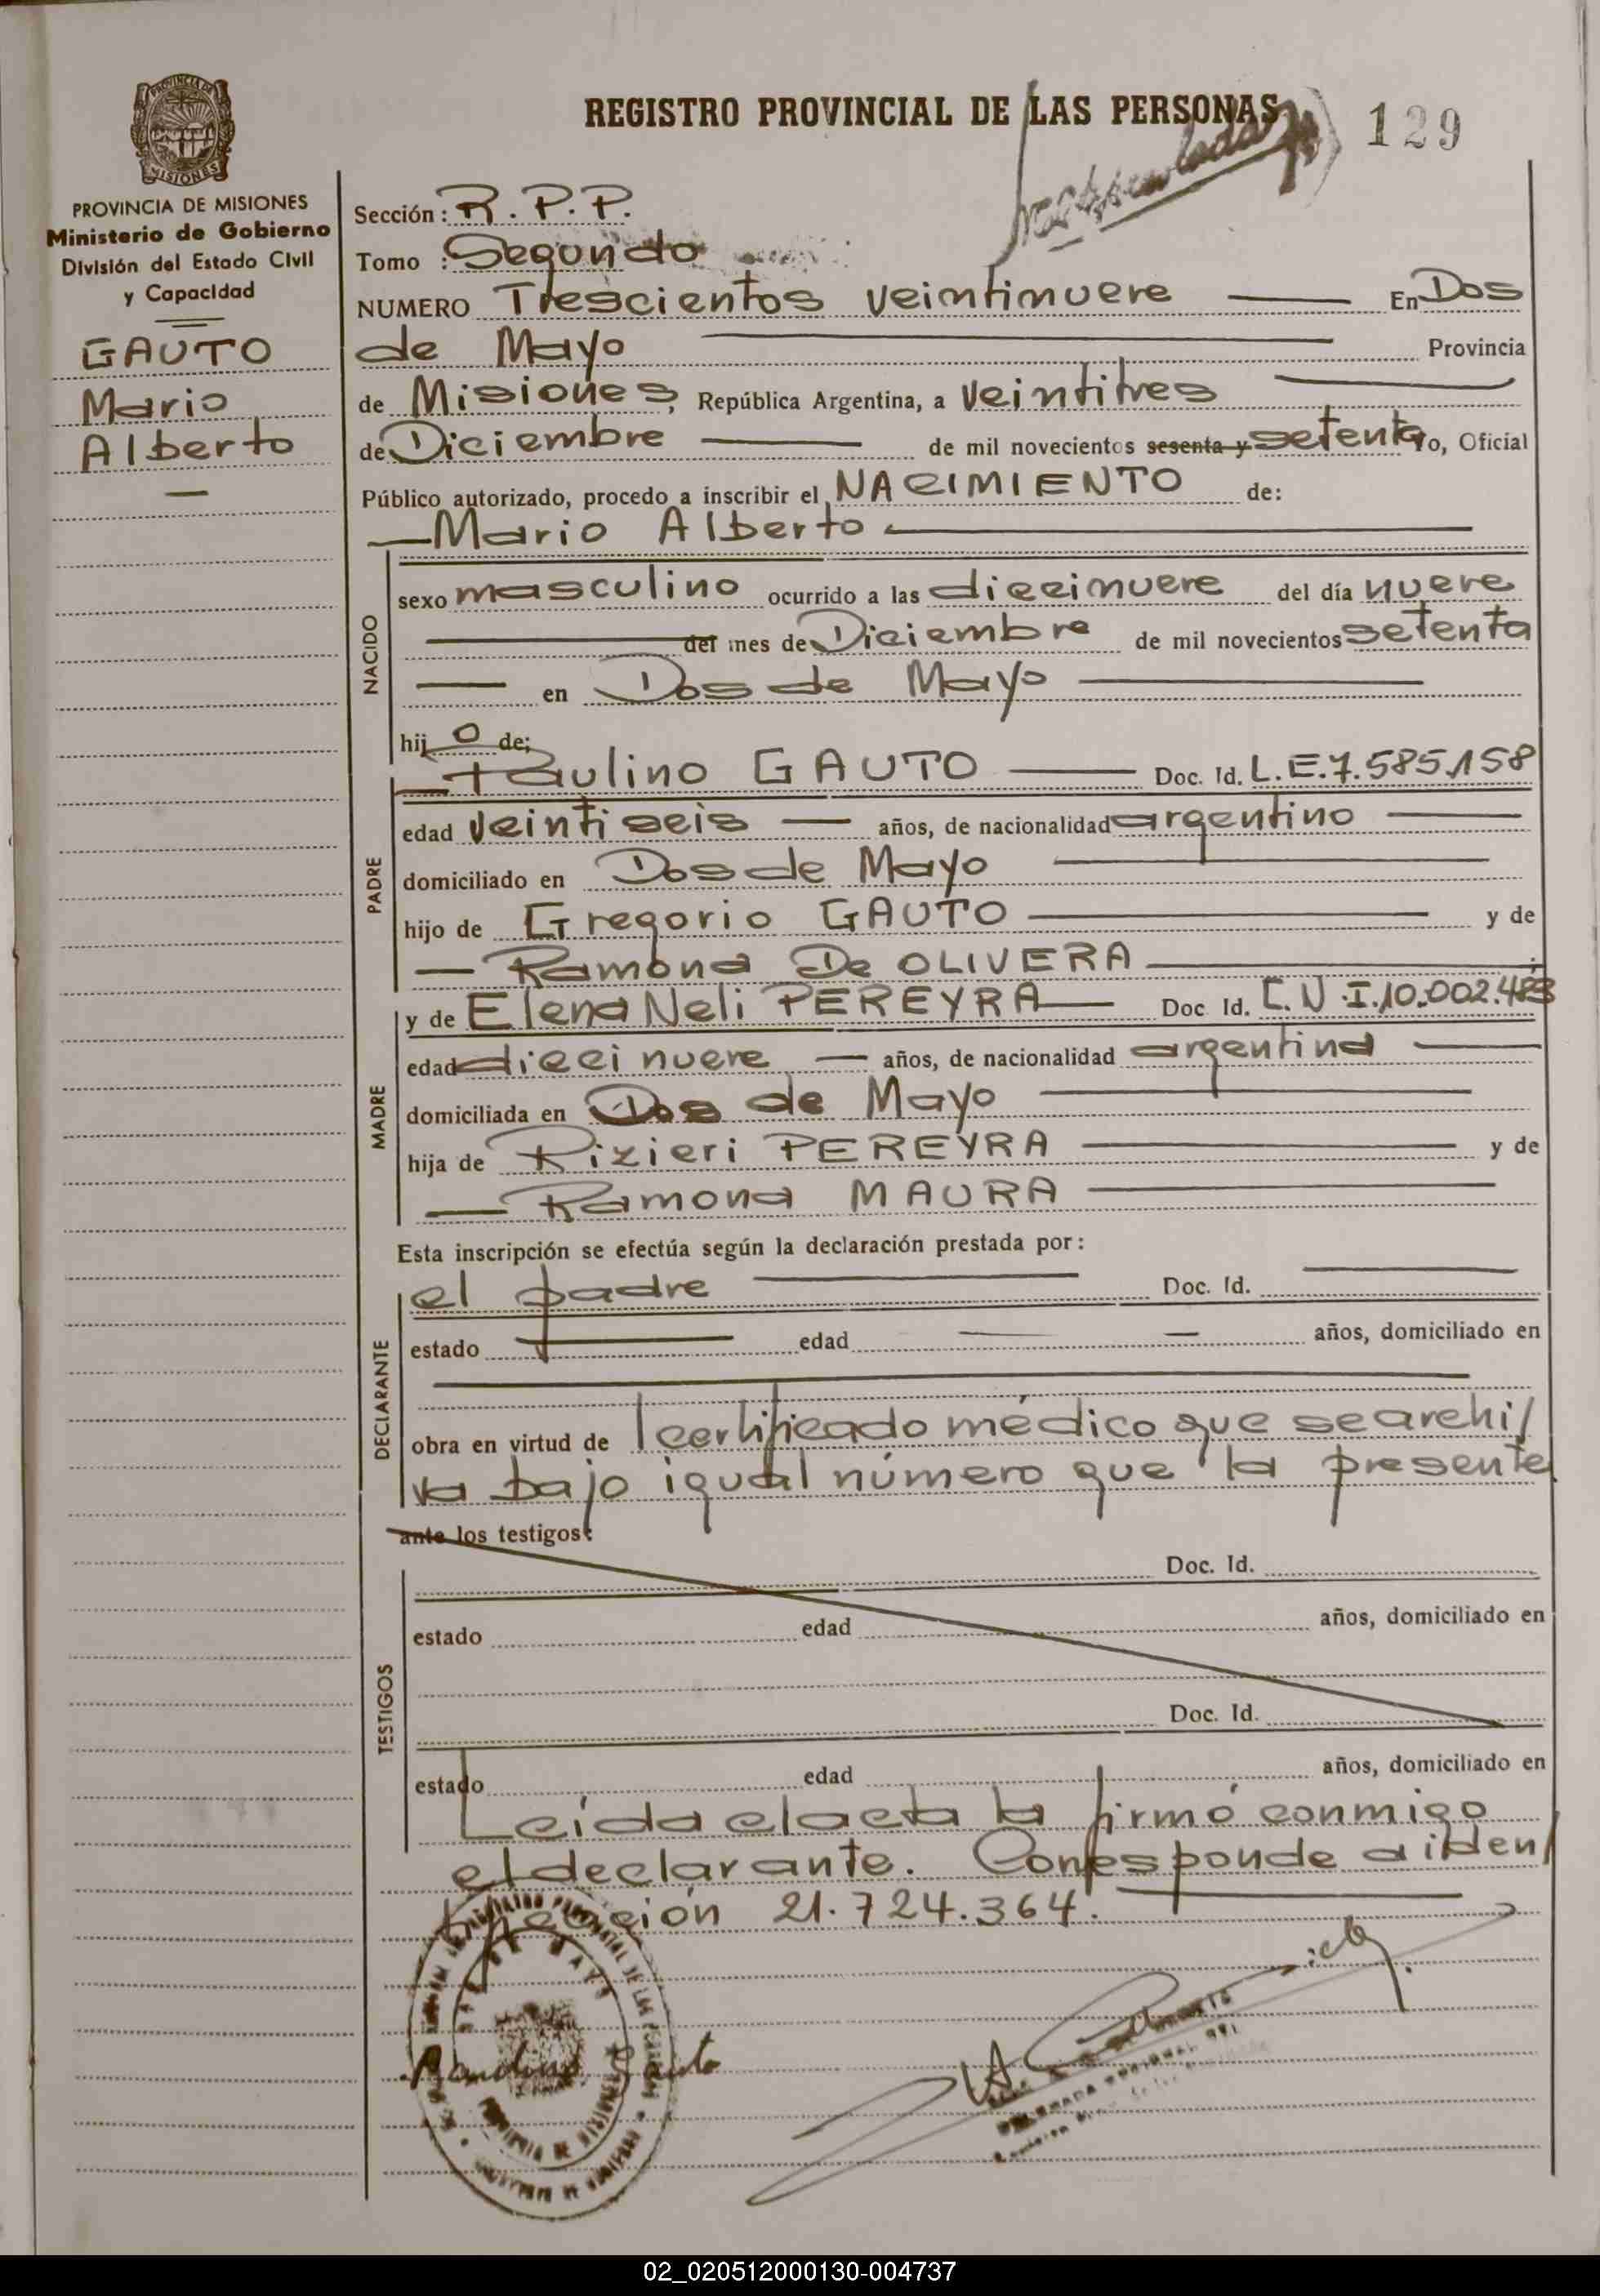 REGISTRO PROVINCIAL DE LAS PERSONAS
129
PROVINCIA DE MISIONES
Ministerio de Gobierno
División del Estado Civil
y Capacidad
GAUTO
Mario
Alberto
Sección: R.P.P.
Tomo : Segundo
NUMERO Trescientos veintinueve En Dos
de Mayo Provincia
de Misiones, República Argentina, a veintitres
de Diciembre de mil novecientos sesenta y setenta Yo, Oficial
Público autorizado, procedo a inscribir el NACIMIENTO de:
Mario Alberto
NACIDO
sexo masculino ocurrido a las diecinueve del día nueve
del mes de Diciembre de mil novecientos setenta
en Dos de Mayo
hijo de:
PADRE
Paulino GAUTO Doc. Id. L.E.7.585.158
edad veintiseis años, de nacionalidad argentino
domiciliado en Dos de Mayo
hijo de Gregorio GAUTO y de
Ramona De OLIVERA
MADRE
y de Elena Neli PEREYRA Doc Id. C.N.I.10.002.483
edad diecinueve años, de nacionalidad argentina
domiciliada en Dos de Mayo
hija de Rizieri PEREYRA y de
Ramona MAURA
Esta inscripción se efectúa según la declaración prestada por:
DECLARANTE
el padre Doc. Id.
estado edad años, domiciliado en
obra en virtud de certificado médico que se archi/
va bajo igual número que la presente
ante los testigos:
TESTIGOS
Doc. Id.
estado edad años, domiciliado en
Doc. Id.
estado edad años, domiciliado en
Leída el acta la firmó conmigo
el declarante. Corresponde a iden/
tificación 21.724.364.
02_020512000130-004737